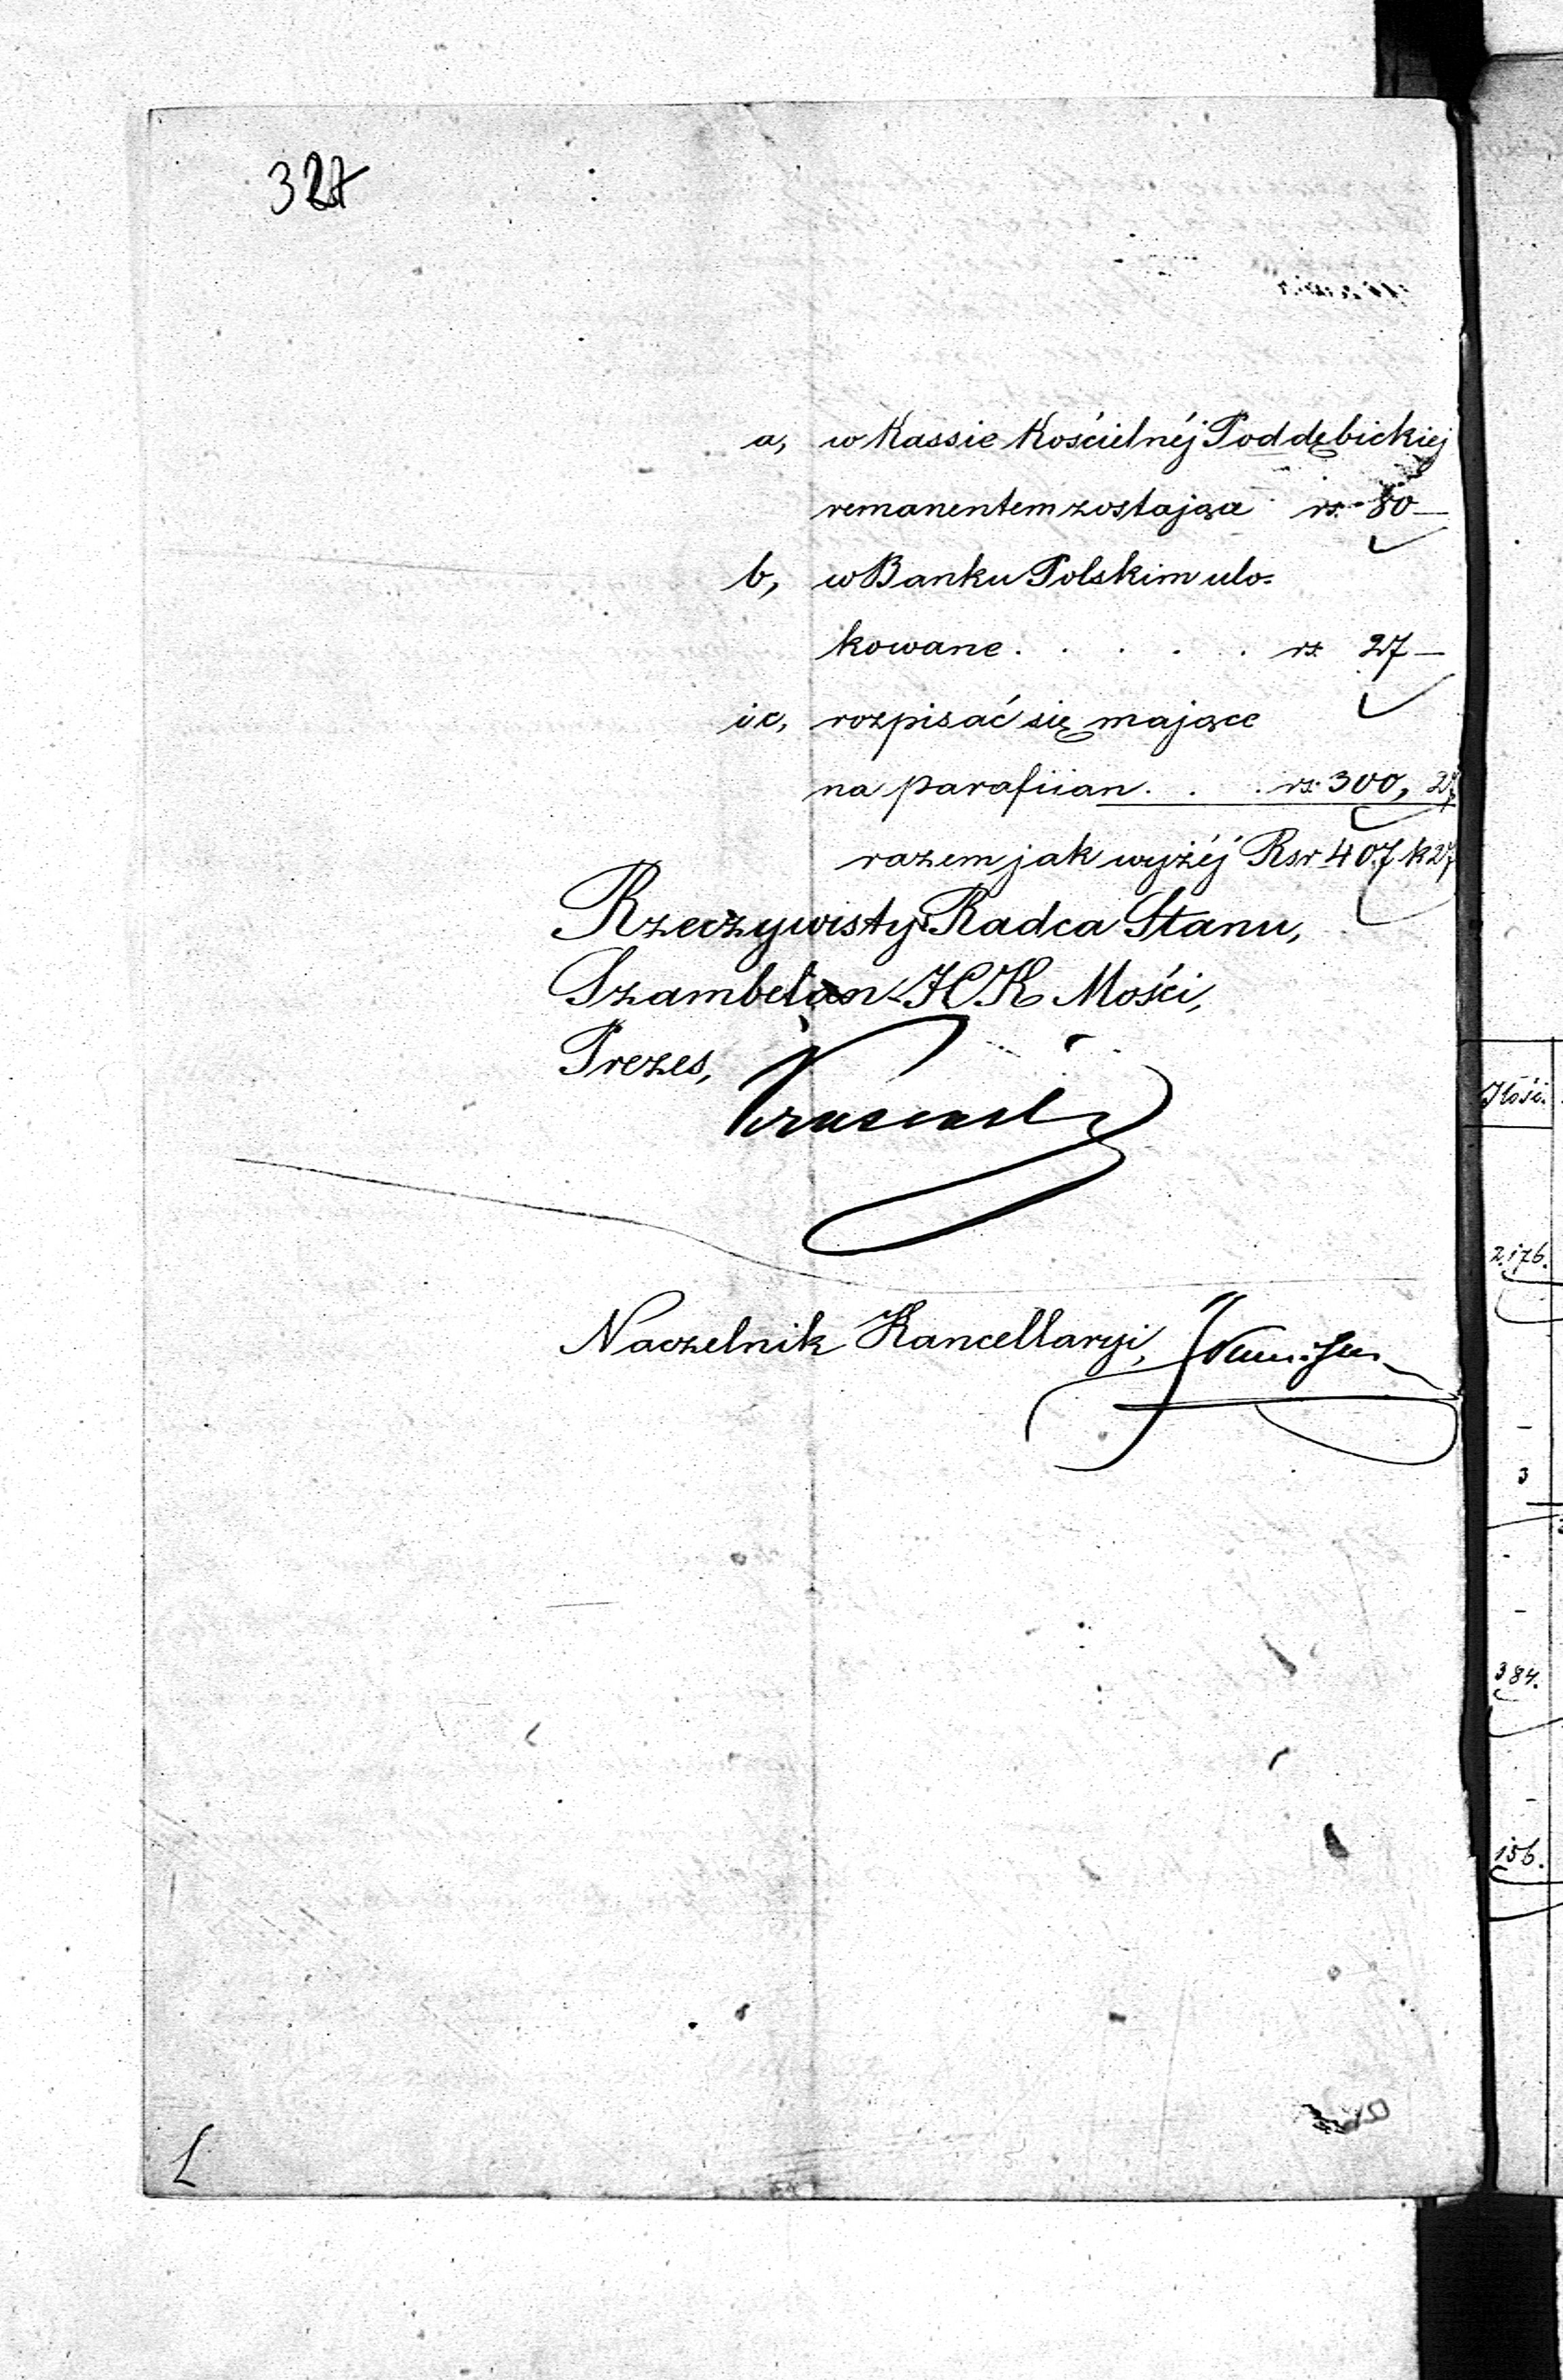 327
a, w Kassie Kościelnéj Poddębickiej
remanentem zostające rs. 80 —
b, w Banku Polskim ulo-
kowane . . . . . rs. 27 —
i c, rozpisać się mające
na parafiian . . . rs. 300, 27
razem jak wyżéj Rsr 407 k 27
Rzeczywisty Radca Stanu,
Szambelan JCK Mości,
Prezes,
Naczelnik Kancellaryi,
Ilość.
2.176.
3
384.
156.